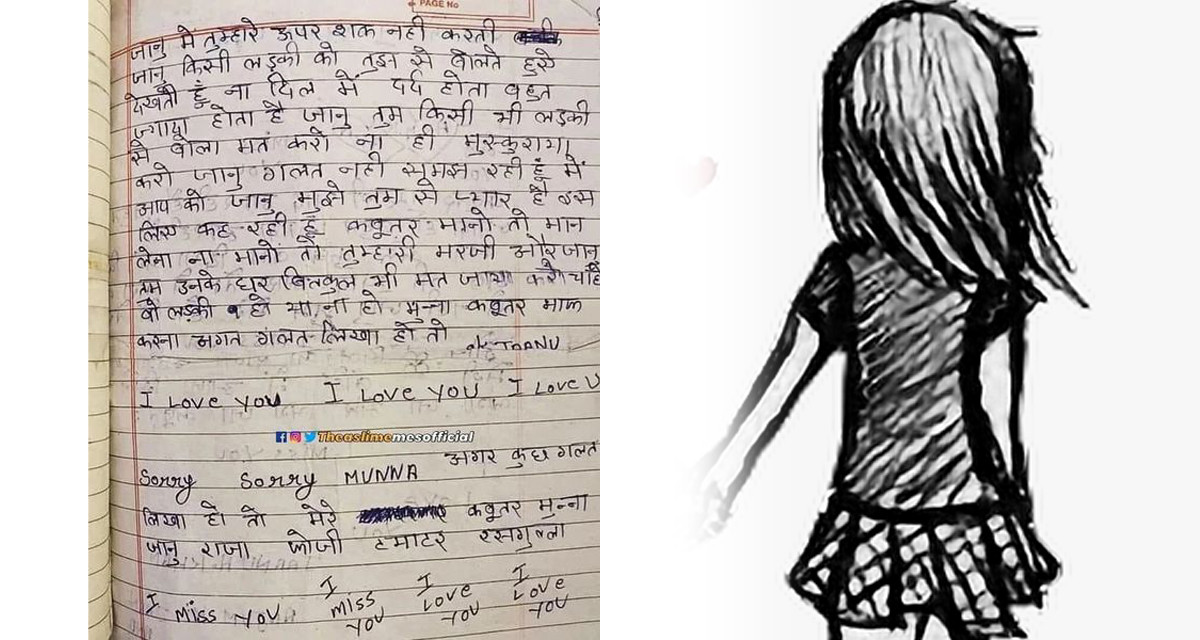 PAGE No
जानु मे तुम्हारे ऊपर शक नही करती
जानु किसी लड़की को तुझ से बोलते हुऐ
देखती हूं ना दिल में दर्द होता बहुत
ज्यादा होता है जानु तुम किसी भी लड़की
से बोला मत करो ना ही मुस्कुराया
करो जानु गलत नही समझ रही हूं में
आप को जानु मुझे तुम से प्यार है इस
लिए कह रही हूं कबूतर मानो तो मान
लेना ना मानो तो तुम्हारी मरजी और जानु
तुम उनके घर बिलकुल भी मत जाया करो चाहे
वो लड़की हो या ना हो मुन्ना कबूतर माफ
करना अगत गलत लिखा हो तो ok JAANU
I LOVE YOU I LOVE YOU I LOVE U
Theaslimememesofficial
अगर कुछ गलत
Sorry Sorry MUNNA
लिखा हो तो मेरे कबूतर मुन्ना
जानु राजा फोजी टमाटर रसगुल्ला
I MISS YOU I MISS YOU I LOVE YOU I LOVE YOU